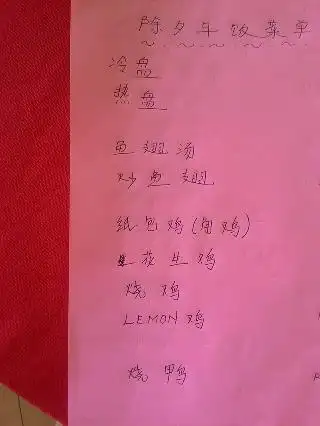 除夕年饭菜单
冷盘
热盘
鱼翅汤
炒鱼翅
纸包鸡(包鸡)
花生鸡
烧鸡
LEMON 鸡
烧鸭